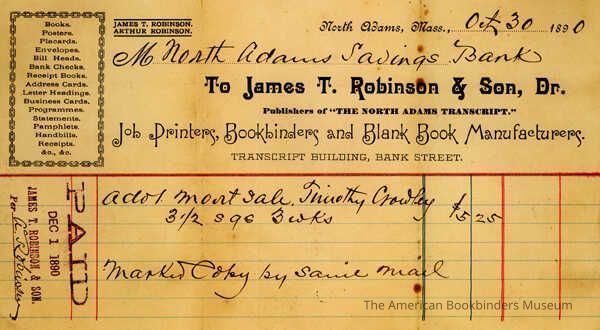 Books.
Posters.
Placards.
Envelopes.
Bill Heads.
Bank Checks.
Receipt Books.
Address Cards.
Letter Headings.
Business Cards.
Programmes.
Statements.
Pamphlets.
Handbills.
Receipts.
&c., &c.
JAMES T. ROBINSON.
ARTHUR ROBINSON.
North Adams, Mass., Oct 30 1890
M North Adams Savings Bank
To James T. Robinson & Son, Dr.
Publishers of "THE NORTH ADAMS TRANSCRIPT."
Job Printers, Bookbinders and Blank Book Manufacturers.
TRANSCRIPT BUILDING, BANK STREET.
Mort Sale, Timothy Crowley $5 25
3 1/2 sqs 3 wks
Marked Copy by same mail
PAID
DEC 1 1890
JAMES T. ROBINSON & SON.
Per
The American Bookbinders Museum